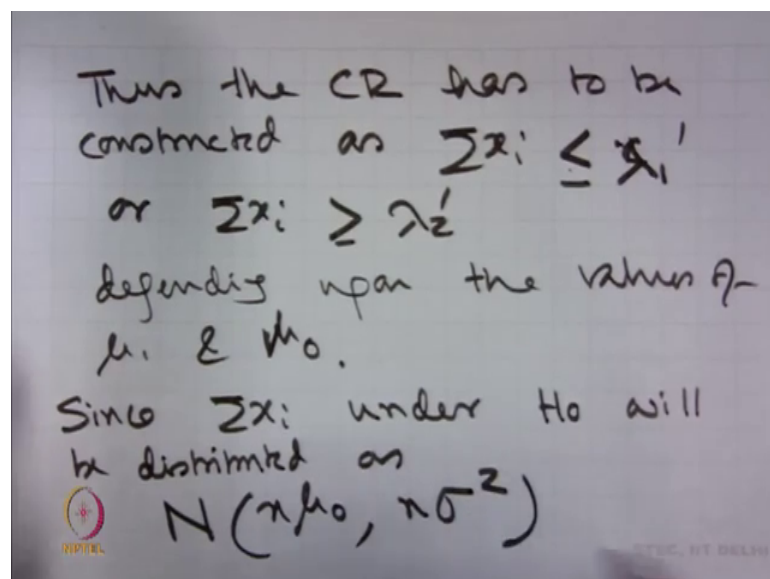 Thus the CR has to be
constructed as Σxᵢ ≤ λ₁'
or Σxᵢ ≥ λ₂'
depending upon the values of
μ₁ & μ₀.
Since Σxᵢ under H₀ will
be distributed as
N(nμ₀, nσ²)
NPTEL
ETSC, IIT DELHI